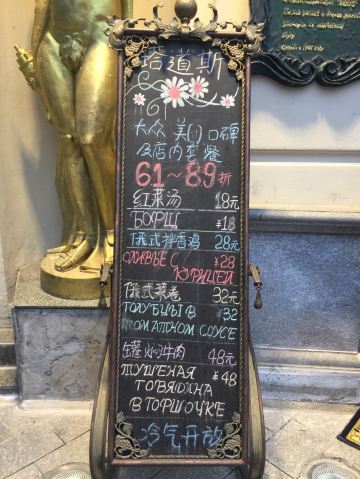 塔道斯
大众 美团 口碑
及店内套餐
61~89折
红菜汤 18元
БОРЩ ¥18
俄式拌香鸡 28元
ОЛИВЬЕ С ¥28
КУРИЦЕЙ
俄式菜卷 32元
ГОЛУБЦЫ В ¥32
ТОМАТНОМ СОУСЕ
罐焖牛肉 48元
ТУШЕНАЯ
ГОВЯДИНА ¥48
В ГОРШОЧКЕ
冷气开放